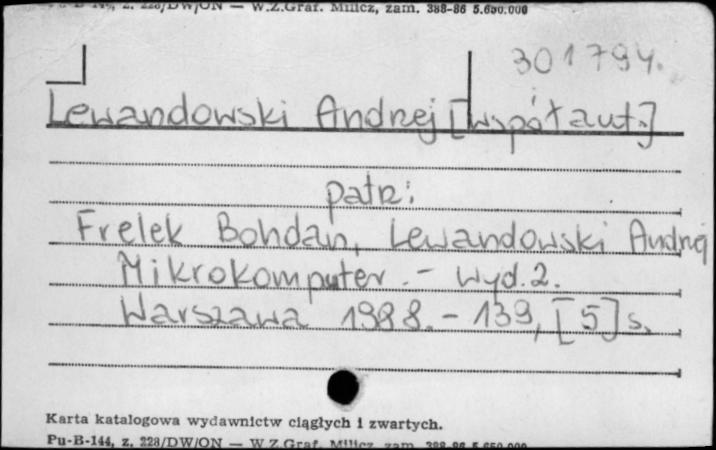 Pu-B-144, z. 228/DW/ON — W.Z.Graf. Milicz, zam. 388-86 5.650.000
301794.
Lewandowski Andrzej [współaut.]
patrz:
Frelek Bohdan, Lewandowski Andrzej
Mikrokomputer. - Wyd. 2.
Warszawa 1988. - 139, [5] s.
Karta katalogowa wydawnictw ciągłych i zwartych.
Pu-B-144, z. 228/DW/ON — W.Z.Graf. Milicz, zam. 388-86 5.650.000